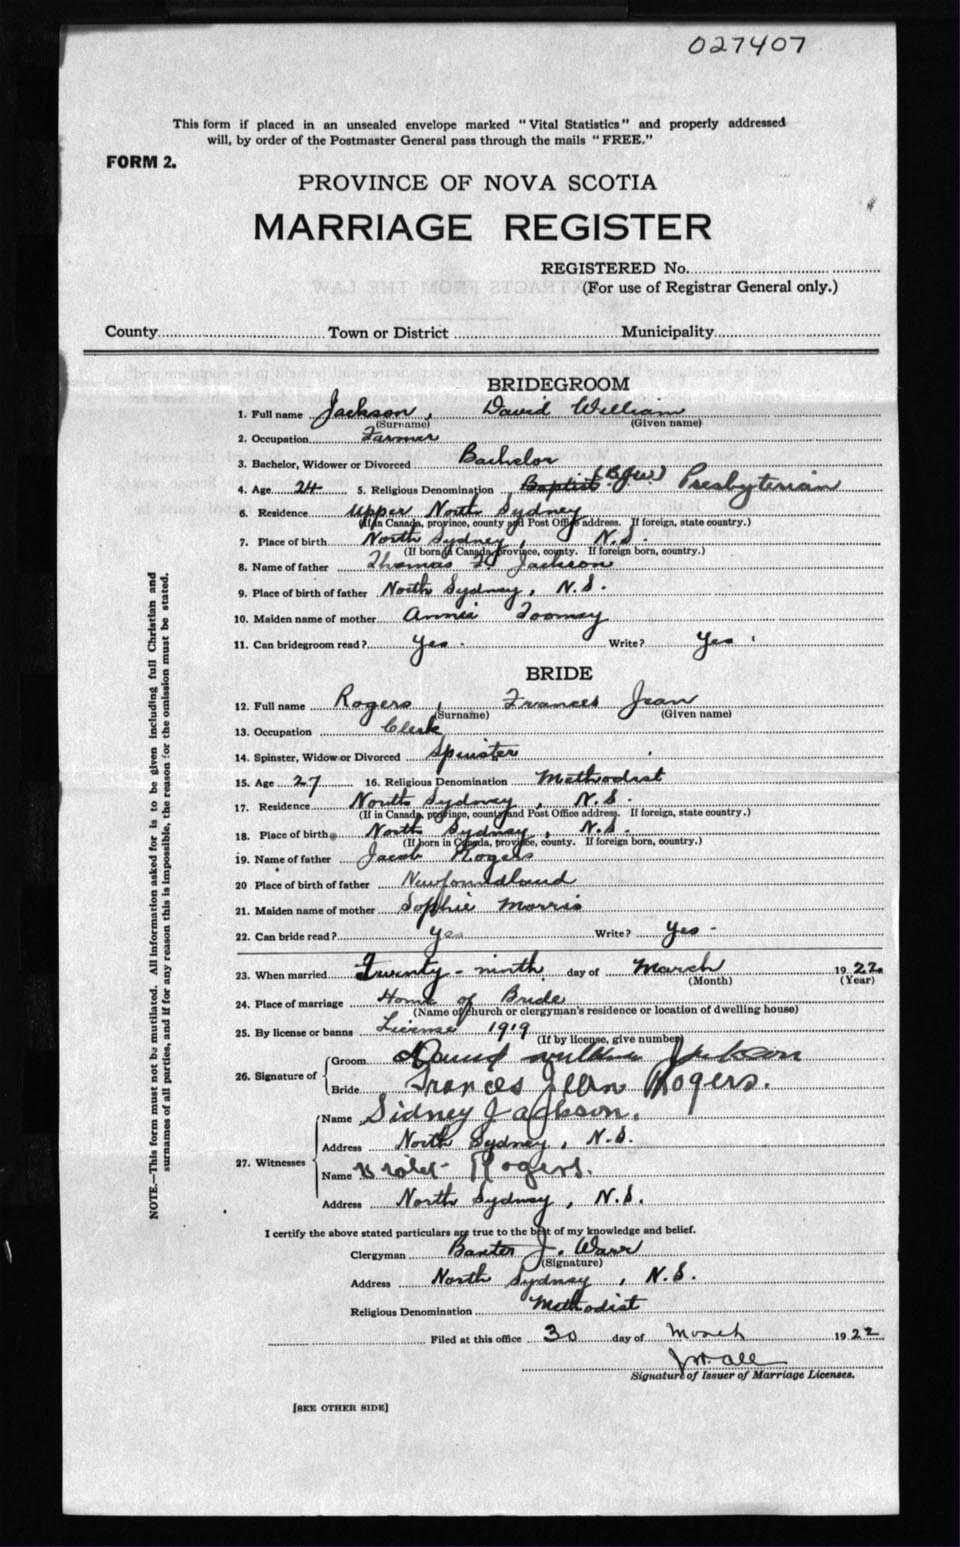 027407
This form if placed in an unsealed envelope marked "Vital Statistics" and properly addressed
will, by order of the Postmaster General pass through the mails "FREE."
FORM 2.
PROVINCE OF NOVA SCOTIA
MARRIAGE REGISTER
REGISTERED No.
(For use of Registrar General only.)
County Town or District Municipality
BRIDEGROOM
1. Full name Jackson, David William
(Surname) (Given name)
2. Occupation Farmer
3. Bachelor, Widower or Divorced Bachelor
4. Age 24 5. Religious Denomination Baptist (BJW) Presbyterian
6. Residence Upper North Sydney
(If in Canada, province, county and Post Office address. If foreign, state country.)
7. Place of birth North Sydney, N.S.
(If born in Canada, province, county. If foreign born, country.)
8. Name of father Thomas Jackson
9. Place of birth of father North Sydney, N.S.
10. Maiden name of mother Annie Toomey
11. Can bridegroom read? Yes. Write? Yes
BRIDE
12. Full name Rogers, Frances Jean
(Surname) (Given name)
13. Occupation Clerk
14. Spinster, Widow or Divorced Spinster
15. Age 27 16. Religious Denomination Methodist
17. Residence North Sydney, N.S.
(If in Canada, province, county and Post Office address. If foreign, state country.)
18. Place of birth North Sydney, N.S.
(If born in Canada, province, county. If foreign born, country.)
19. Name of father Jacob Rogers
20 Place of birth of father Newfoundland
21. Maiden name of mother Sophie Morris
22. Can bride read? Yes Write? Yes-
23. When married Twenty-ninth day of March 1922
(Month) (Year)
24. Place of marriage Home of Bride
(Name of church or clergyman's residence or location of dwelling house)
25. By license or banns License 1919
(If by license, give number)
26. Signature of Groom David William Jackson
Bride Frances Jean Rogers.
27. Witnesses Name Sidney Jackson.
Address North Sydney, N.S.
Name Rogers.
Address North Sydney, N.S.
I certify the above stated particulars are true to the best of my knowledge and belief.
Clergyman Baxter J. Warr
(Signature)
Address North Sydney, N.S.
Religious Denomination Methodist
Filed at this office 30 day of March 1922
Signature of Issuer of Marriage Licenses.
[SEE OTHER SIDE]
NOTE.—This form must not be mutilated. All information asked for is to be given including full Christian and
surnames of all parties, and if for any reason this is impossible, the reason for the omission must be stated.